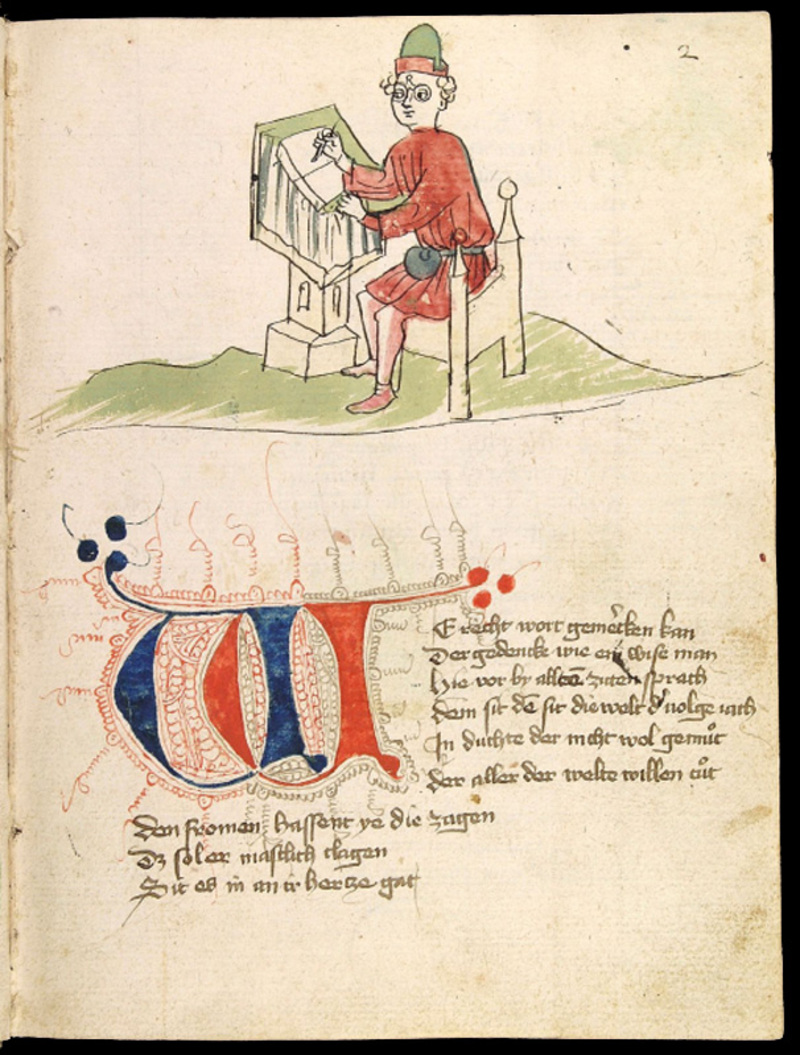 2
WE recht wort gem̕cken kan
Der gedencke wie ein wise man
hie vor by allten ziten sprach
dem sit dē sit die welt d̕ volge iach
In duchte der nicht wol gemuͦt
der aller der welte willen tuͦt
den fromen hassent ye die zagen
Dz sol er maslich clagen
Sit es in an ir hertze gat